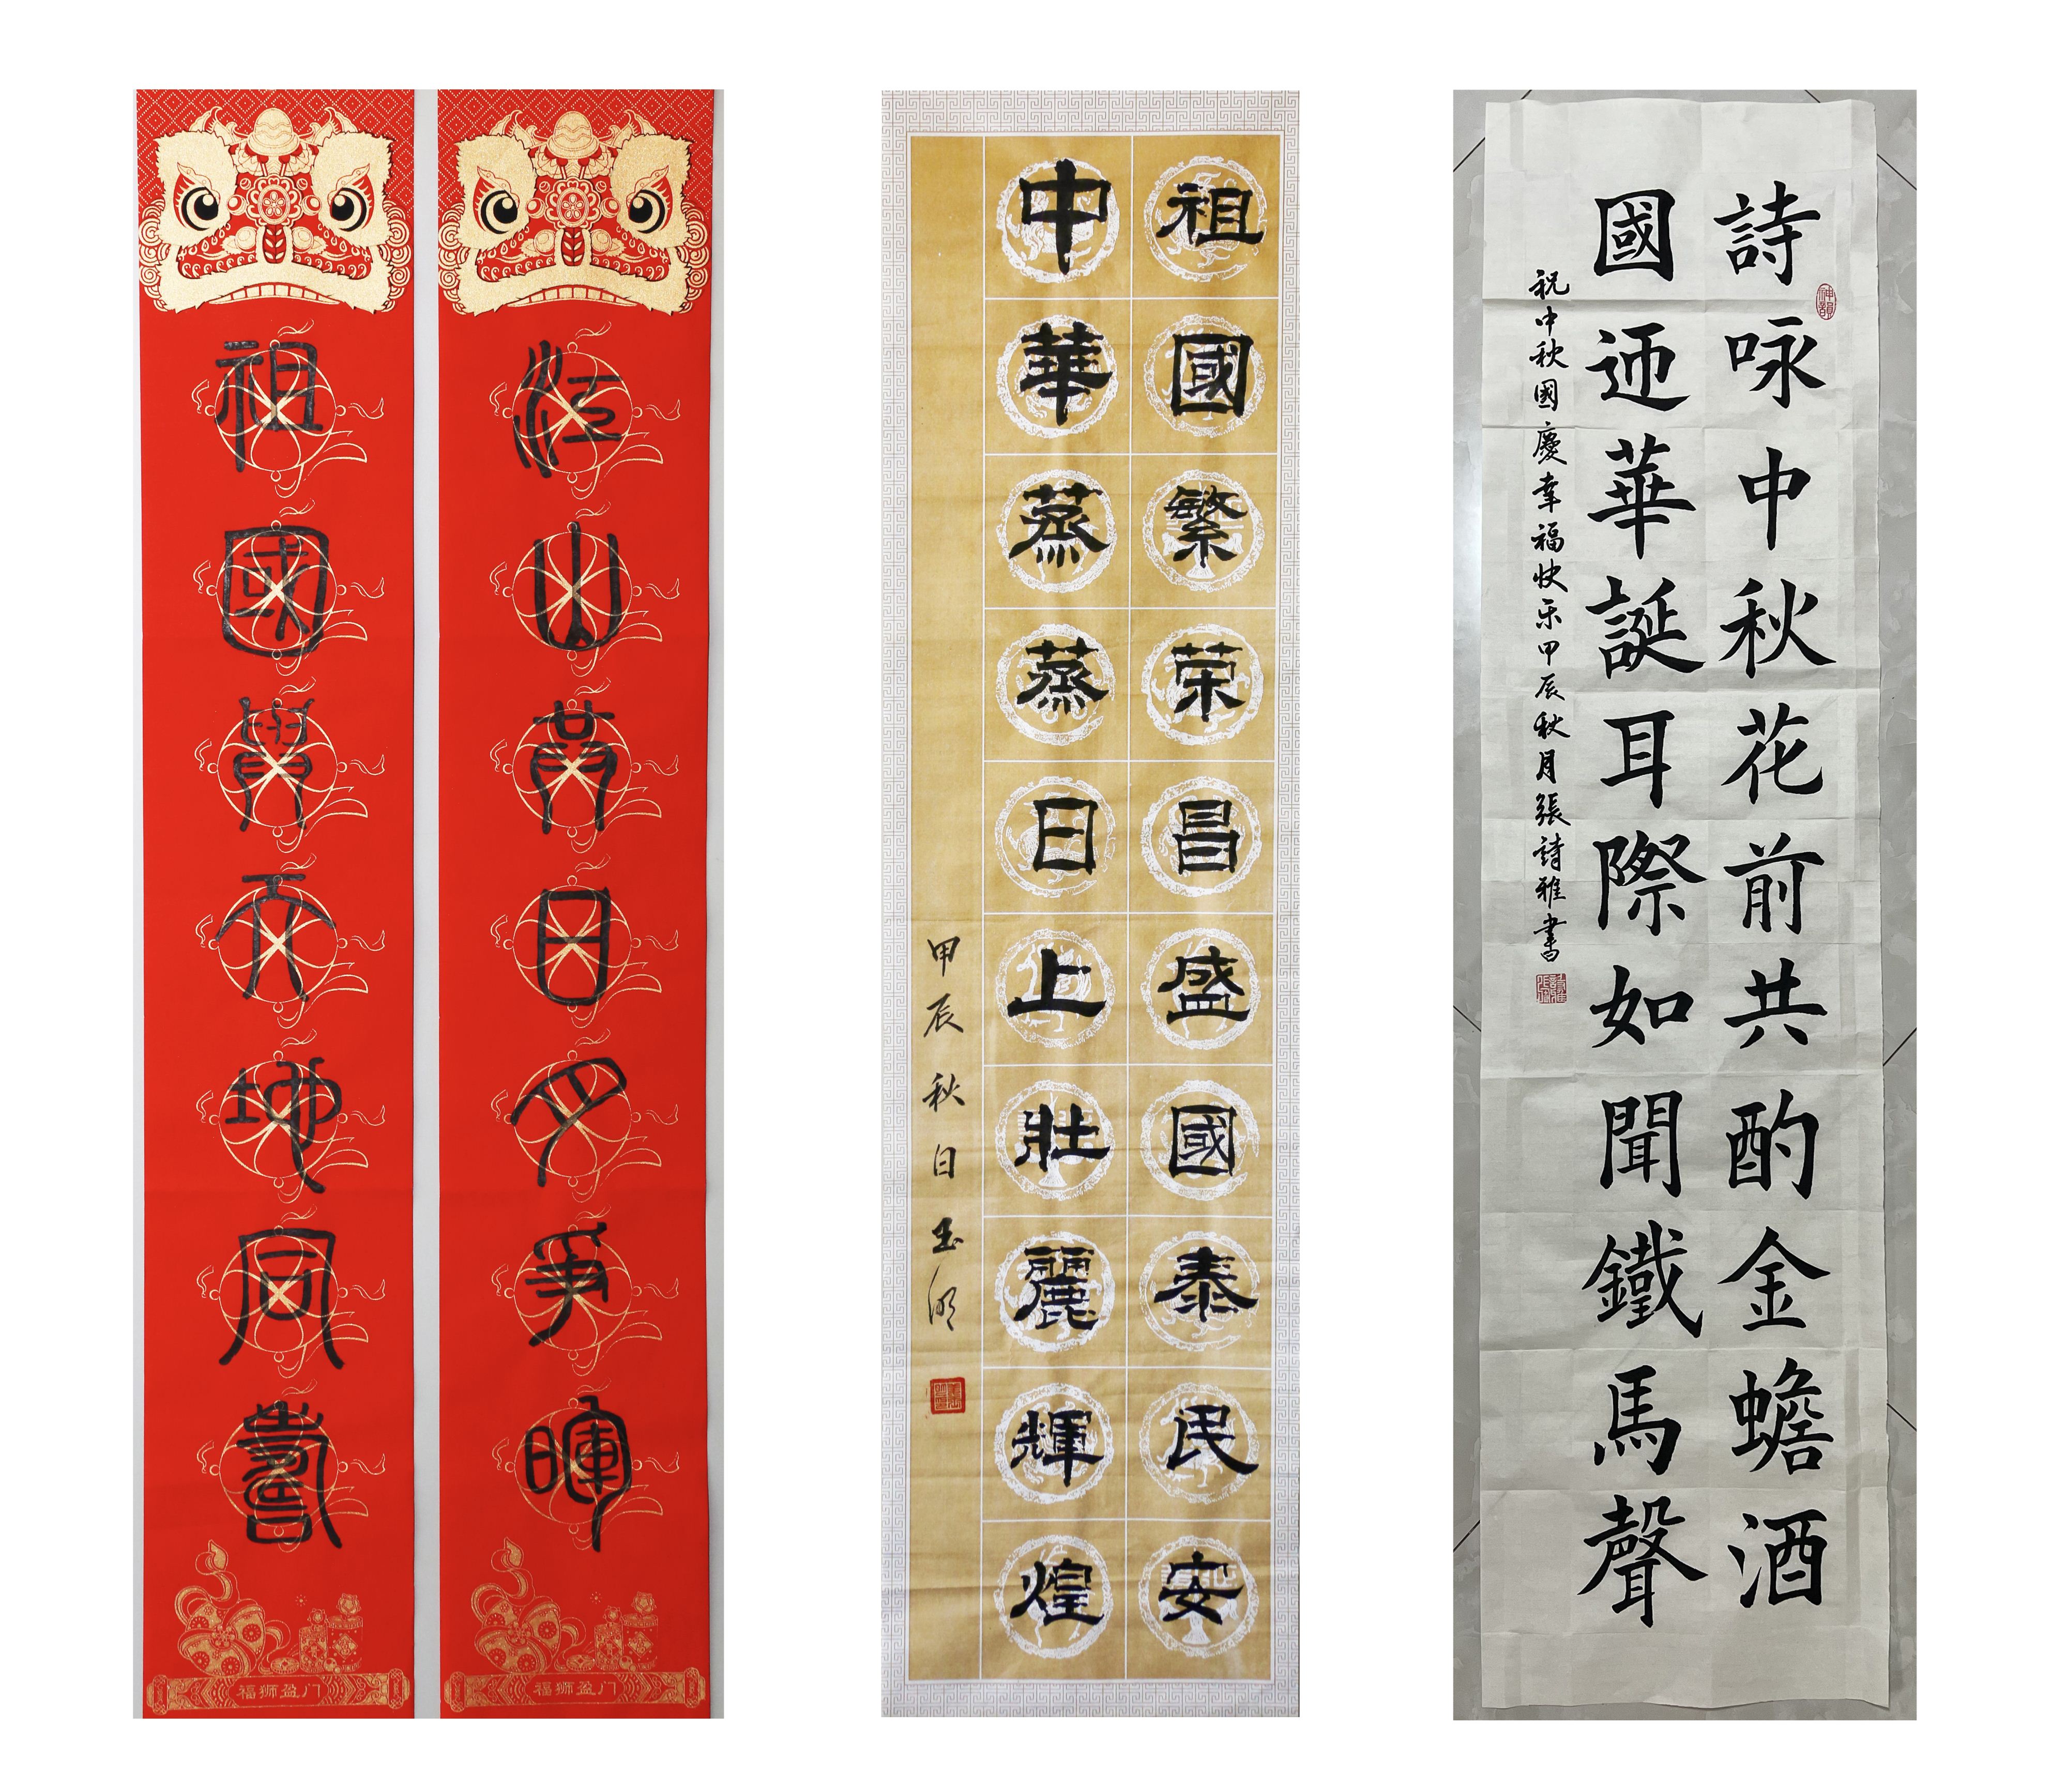 江山共日月爭暉
福狮盈门
祖國與天地同壽
福狮盈门
祖國繁荣昌盛國泰民安
中華蒸蒸日上壯麗輝煌
甲辰秋日玉
詩咏中秋花前共酌金蟾酒
神韻
國迊華誕耳際如聞鐵馬聲
祝中秋國慶幸福快乐甲辰秋月張詩雅書